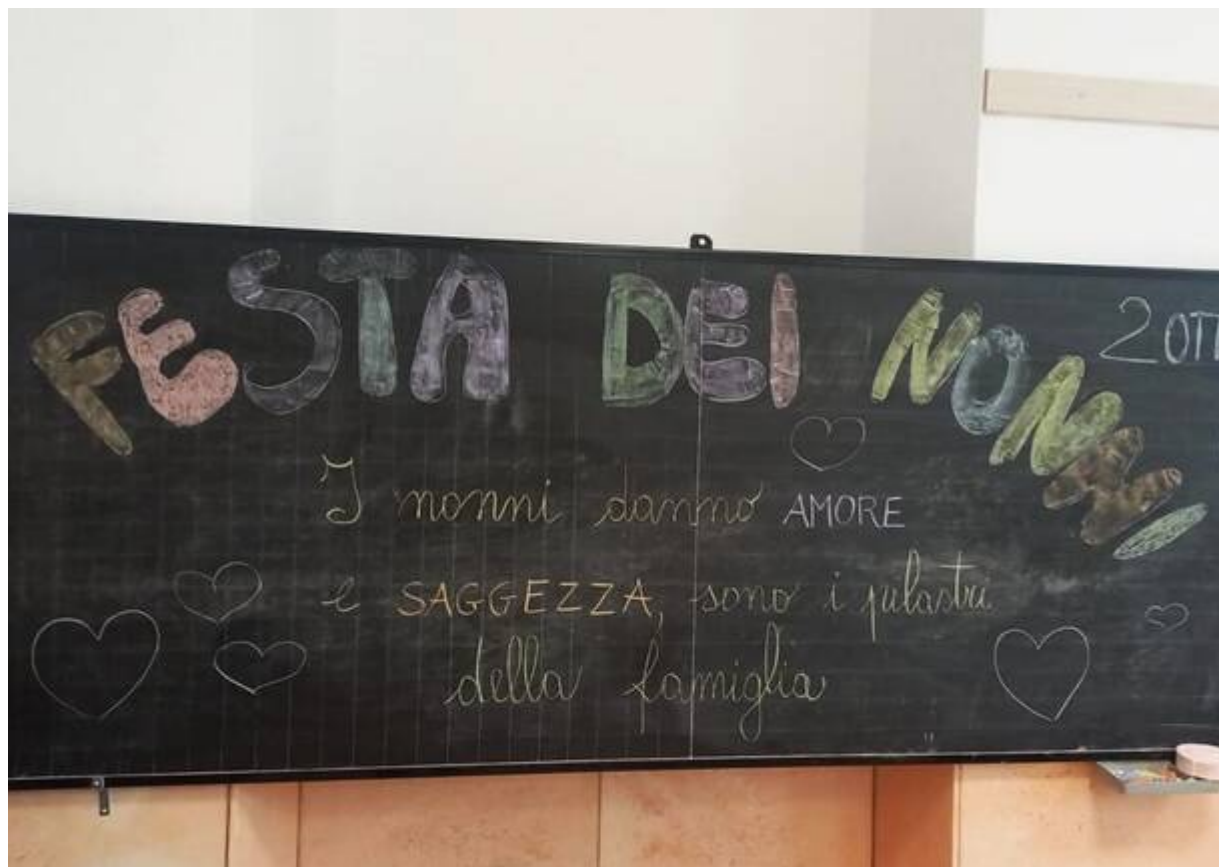 FESTA DEI NONNI
2 OTT
I nonni danno AMORE
e SAGGEZZA, sono i pilastri
della famiglia